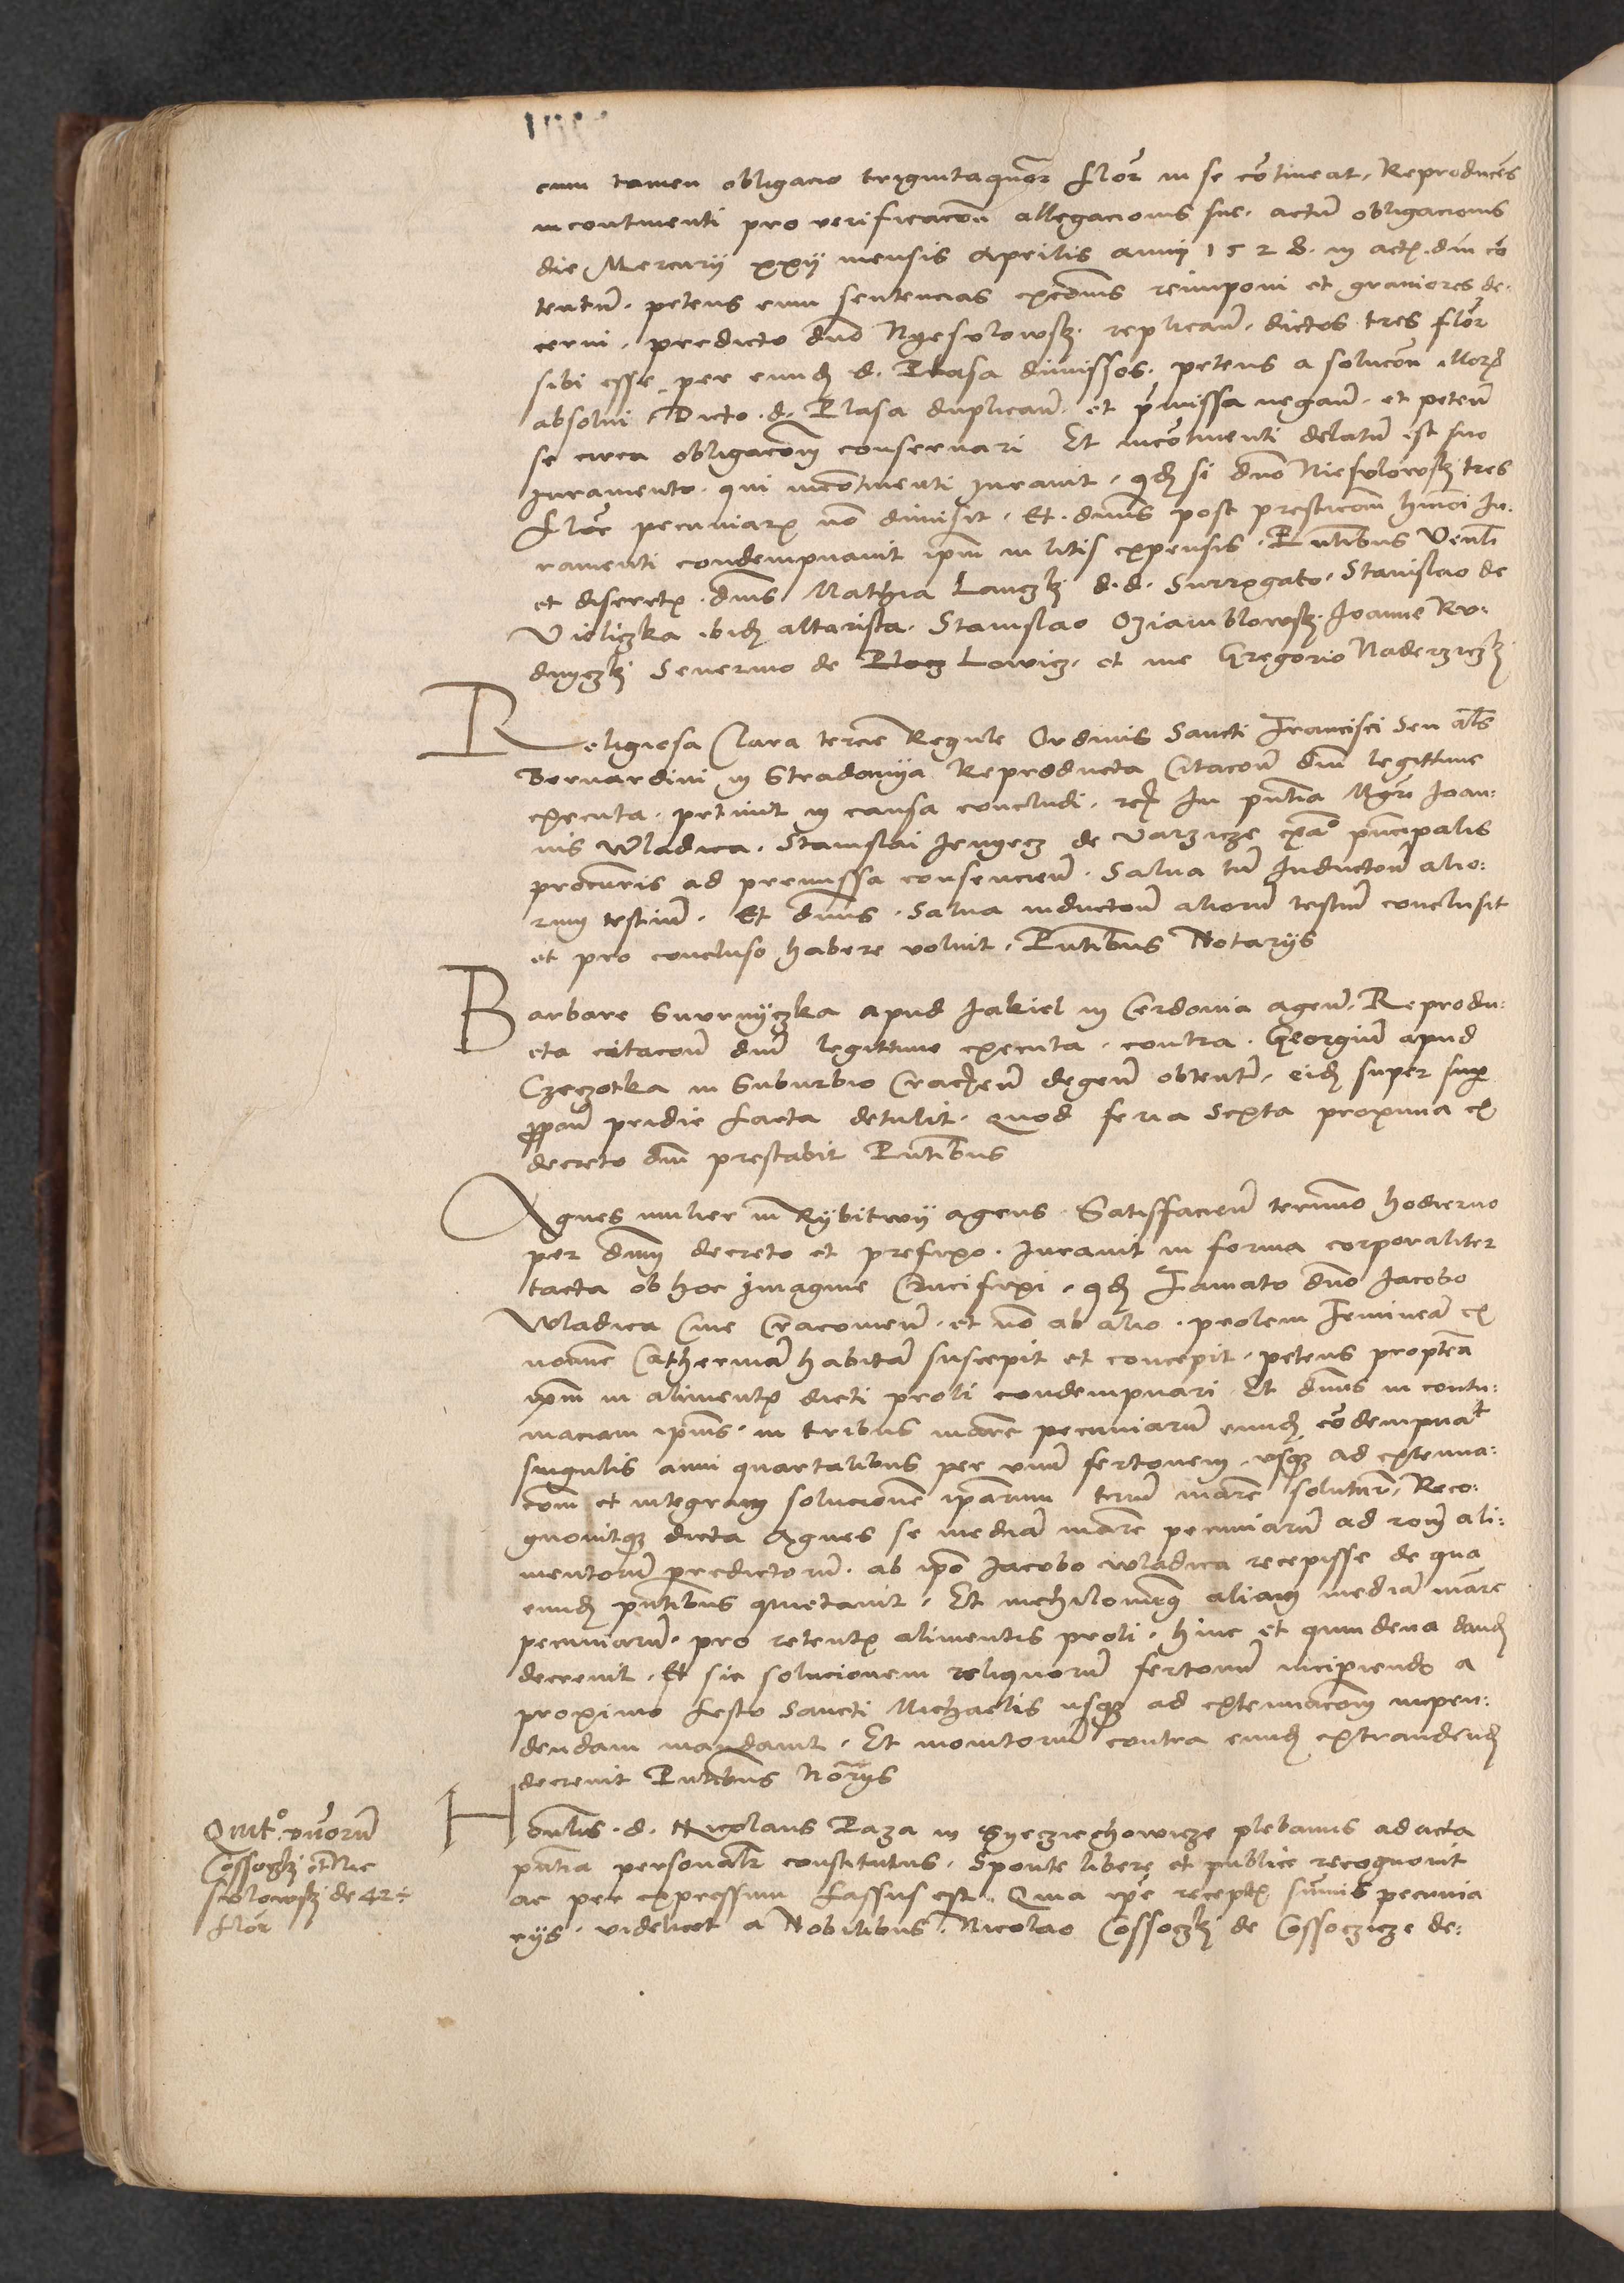 cum tamen obligacio trigintaquor flor in se cotineat. Reproducens
incontinenti pro verificacon allegacionis sue. actum obligacionis
die Mercurij xxij mensis Aprilis anni 1528. in act. dni co
tentum. petens eum sentencias excoms reimponi et graviores de:
cerni. predicto dno Nyesulowsky. replican. dictos tres flor
sibi esse per eund d. Plasa dimissos. petens a solucon illorum
absolvi. Dicto. d. Plasa duplican. et pmissa negan. et peten
se circa obligacom conservari Et incotinenti delatum est suo
Juramento. qui incotinenti Juravit. qd si dno Niesulowsky tres
flor pecuniarum no dimisit. Et. dnus post presticom hmoi Ju:
ramenti condempnavit ipm in litis expensis. Pntibus Venli
et discretis. dnis Mathia Lanczky d. d. Surrogato. Stanislao de
Vieliczka ibid altarista. Stanislao Oziamblowsky. Joanne Ru:
dnyczky Severino de Plocz Lowicz. et me Gregorio Naderziczky
Religiosa Clara tercie Regule Ordinis Sancti Francisci Seu als
Bernardini in Stradomya Reproducta Citacon dni legittime
executa. petivit in causa concludi. In pntia Mgri Joan:
nis Wladica. Stanislai Jenyecz de Varzicze exa° principalis
procuris ad premissa consencien. Salva tn Inducton alio:
rum testium. Et dnus. Salva inducton aliorum testium conclusit
et pro concluso habere voluit. Pntibus Notarijs
Barbare Gurnyczka apud Jakiel in Cerdonia agen. Reprodu:
cta citacon dni legittime executa. contra. Georgium apud
Czeczotka in Suburbio Cracien degen obtent. eid super
ppon pridie facta detulit. quod feria Sexta proxima ex
decreto dni prestabit Pntibus
Agnes mulier in Rybitwij agens. Satisfacien termino hodierno
per dnum decreto et prefixo. Juravit in forma corporaliter
tacta ob hoc Imagine Crucifixi. qd Famato dno Jacobo
Wladica Cive Cracovien. et no ab alio. prolem Femineam ex
nomine Catherinam habitam suscepit et concepit. petens proptea
ipm in alimentis dicti proli condempnari Et dnus in contu:
maciam ipius. in tribus marc pecuniarum eund codempnat
singulis anni quartalibus per unum fertonem. usque ad extenua:
com et integram solucionem ipsarum trium marc soluturum. Reco:
gnovitque dicta Agnes se mediam marc pecuniarum ad rom ali:
mentorum predictorum. ab ipo Jacobo Wladica recepisse de qua
eund pntibus quietavit. Et nichilominus aliam mediam marc
pecuniarum. pro retentis alimentis proli. hinc et quindena dand
decrevit. Et sic solucionem reliquorum fertonum incipiendo a
proximo festo Sancti Michaelis usque ad extenuacom inpen:
dendam mandavit. Et monitorium contra eund extrandend
decrevit Pntibus Norijs
Honlis. d. Nicolaus Raza in Syeczechowicze plebanus ad acta
pntia personalr constitutus. Sponte libere et publice recognovit
ac per expressum fassus est. Quia ipe receptis sumis pecunia
rijs. videlicet a Nobilibus. Nicolao Cossoczky de Cossoczicze de:
Quit° duorum
Cossoczky et Nie
sulowsky de 42 ÷
flor